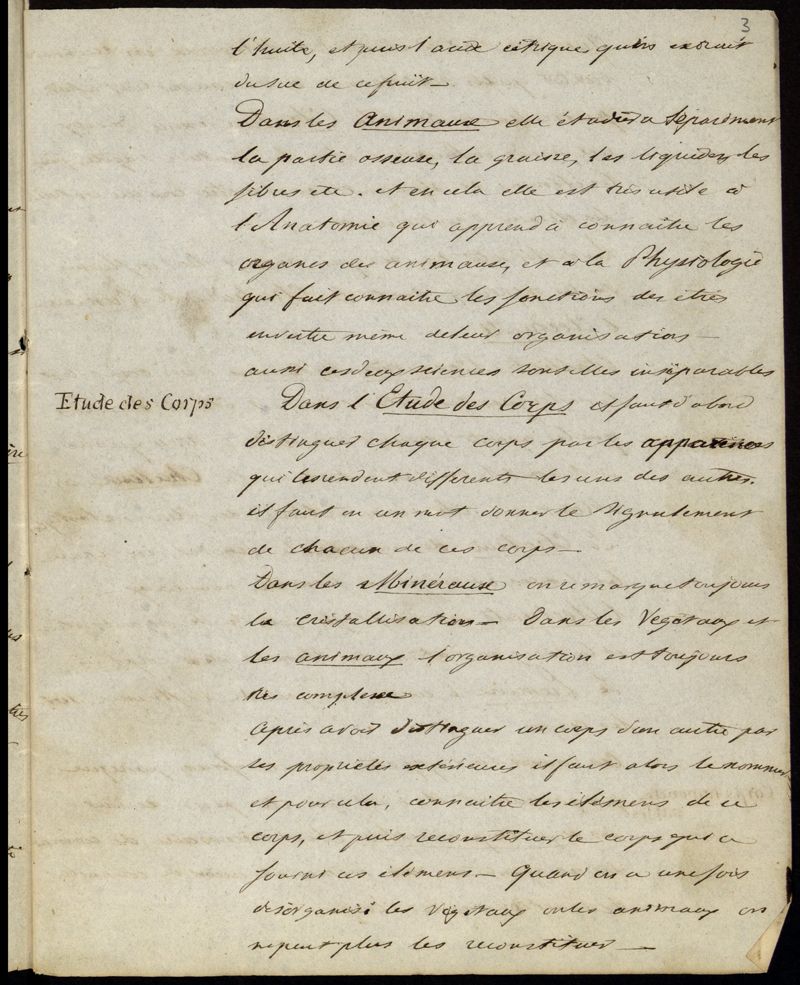 3
l'huile, et puis l'acide citrique qu'on extrait
du suc de ce fruit —
Dans les Animaux elle étudiera Séparément
la partie osseuse, la graisse, les liquides, les
fibres etc. et en cela elle est très utile à
l'Anatomie qui apprend à connaitre les
organes des animaux, et à la Physiologie
qui fait connaitre les fonctions des êtres
en vertu même de leur organisation —
aussi ces deux sciences sont elles inséparables
Etude des Corps
Dans l'Etude des Corps il faut d'abord
distinguer chaque corps par les apparences
qui les rendent différents les uns des autres.
il faut en un mot donner le signalement
de chacun de ces corps —
Dans les Minéraux on remarque toujours
la cristallisation — Dans les Végétaux et
les animaux l'organisation est toujours
très complexe
après avoir distinguer un corps d'un autre par
ses propriétés extérieures il faut alors le nommer
et pour cela, connaitre les élémens de ce
corps, et puis reconstituer le corps qui a
fourni ces élémens — Quand on a une fois
désorganisé les végétaux ou les animaux on
ne peut plus les reconstituer —